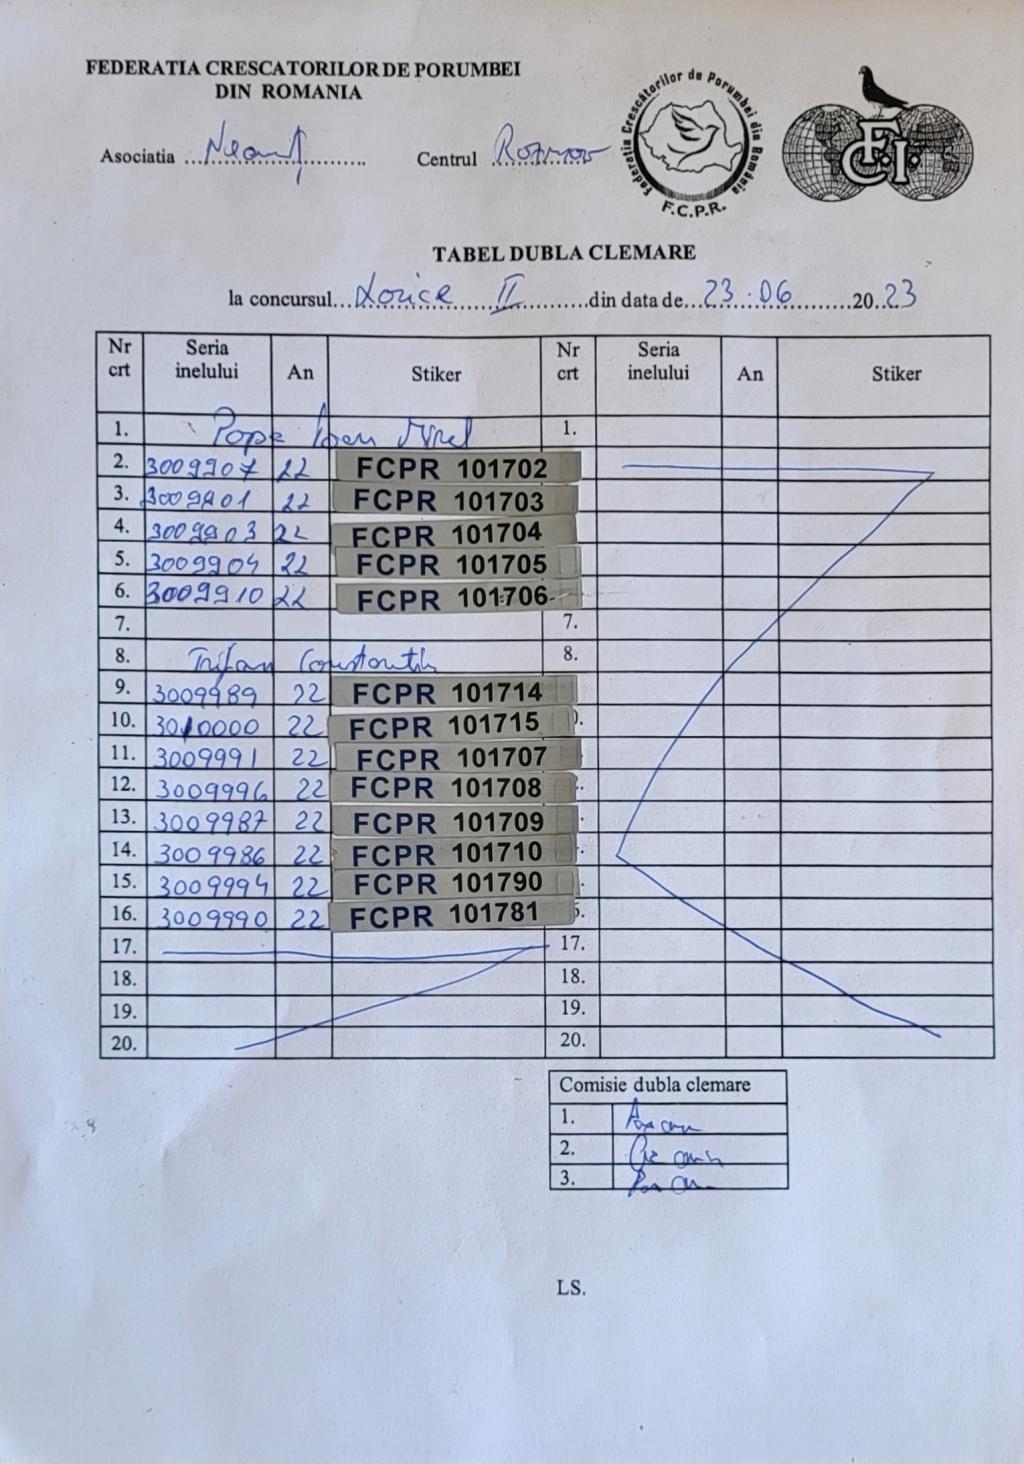 FEDERATIA CRESCATORILOR DE PORUMBEI
DIN ROMANIA
Federatia Crescătorilor de Porumbei din România
F.C.P.R.
F.C.I.
Asociatia Neamț Centrul Roznov
TABEL DUBLA CLEMARE
la concursul Lozice II din data de 23.06 2023
Nr crt Seria inelului An Stiker Nr crt Seria inelului An Stiker
1. Popa Ioan 1.
2. 3009907 22 FCPR 101702
3. 3009901 22 FCPR 101703
4. 3009903 22 FCPR 101704
5. 3009904 22 FCPR 101705
6. 3009910 22 FCPR 101706
7. 7.
8. Trifan Constantin 8.
9. 3009989 22 FCPR 101714
10. 3010000 22 FCPR 101715
11. 3009991 22 FCPR 101707
12. 3009996 22 FCPR 101708
13. 3009987 22 FCPR 101709
14. 3009986 22 FCPR 101710
15. 3009994 22 FCPR 101790
16. 3009990 22 FCPR 101781
17. 17.
18. 18.
19. 19.
20. 20.
Comisie dubla clemare
1.
2.
3.
LS.